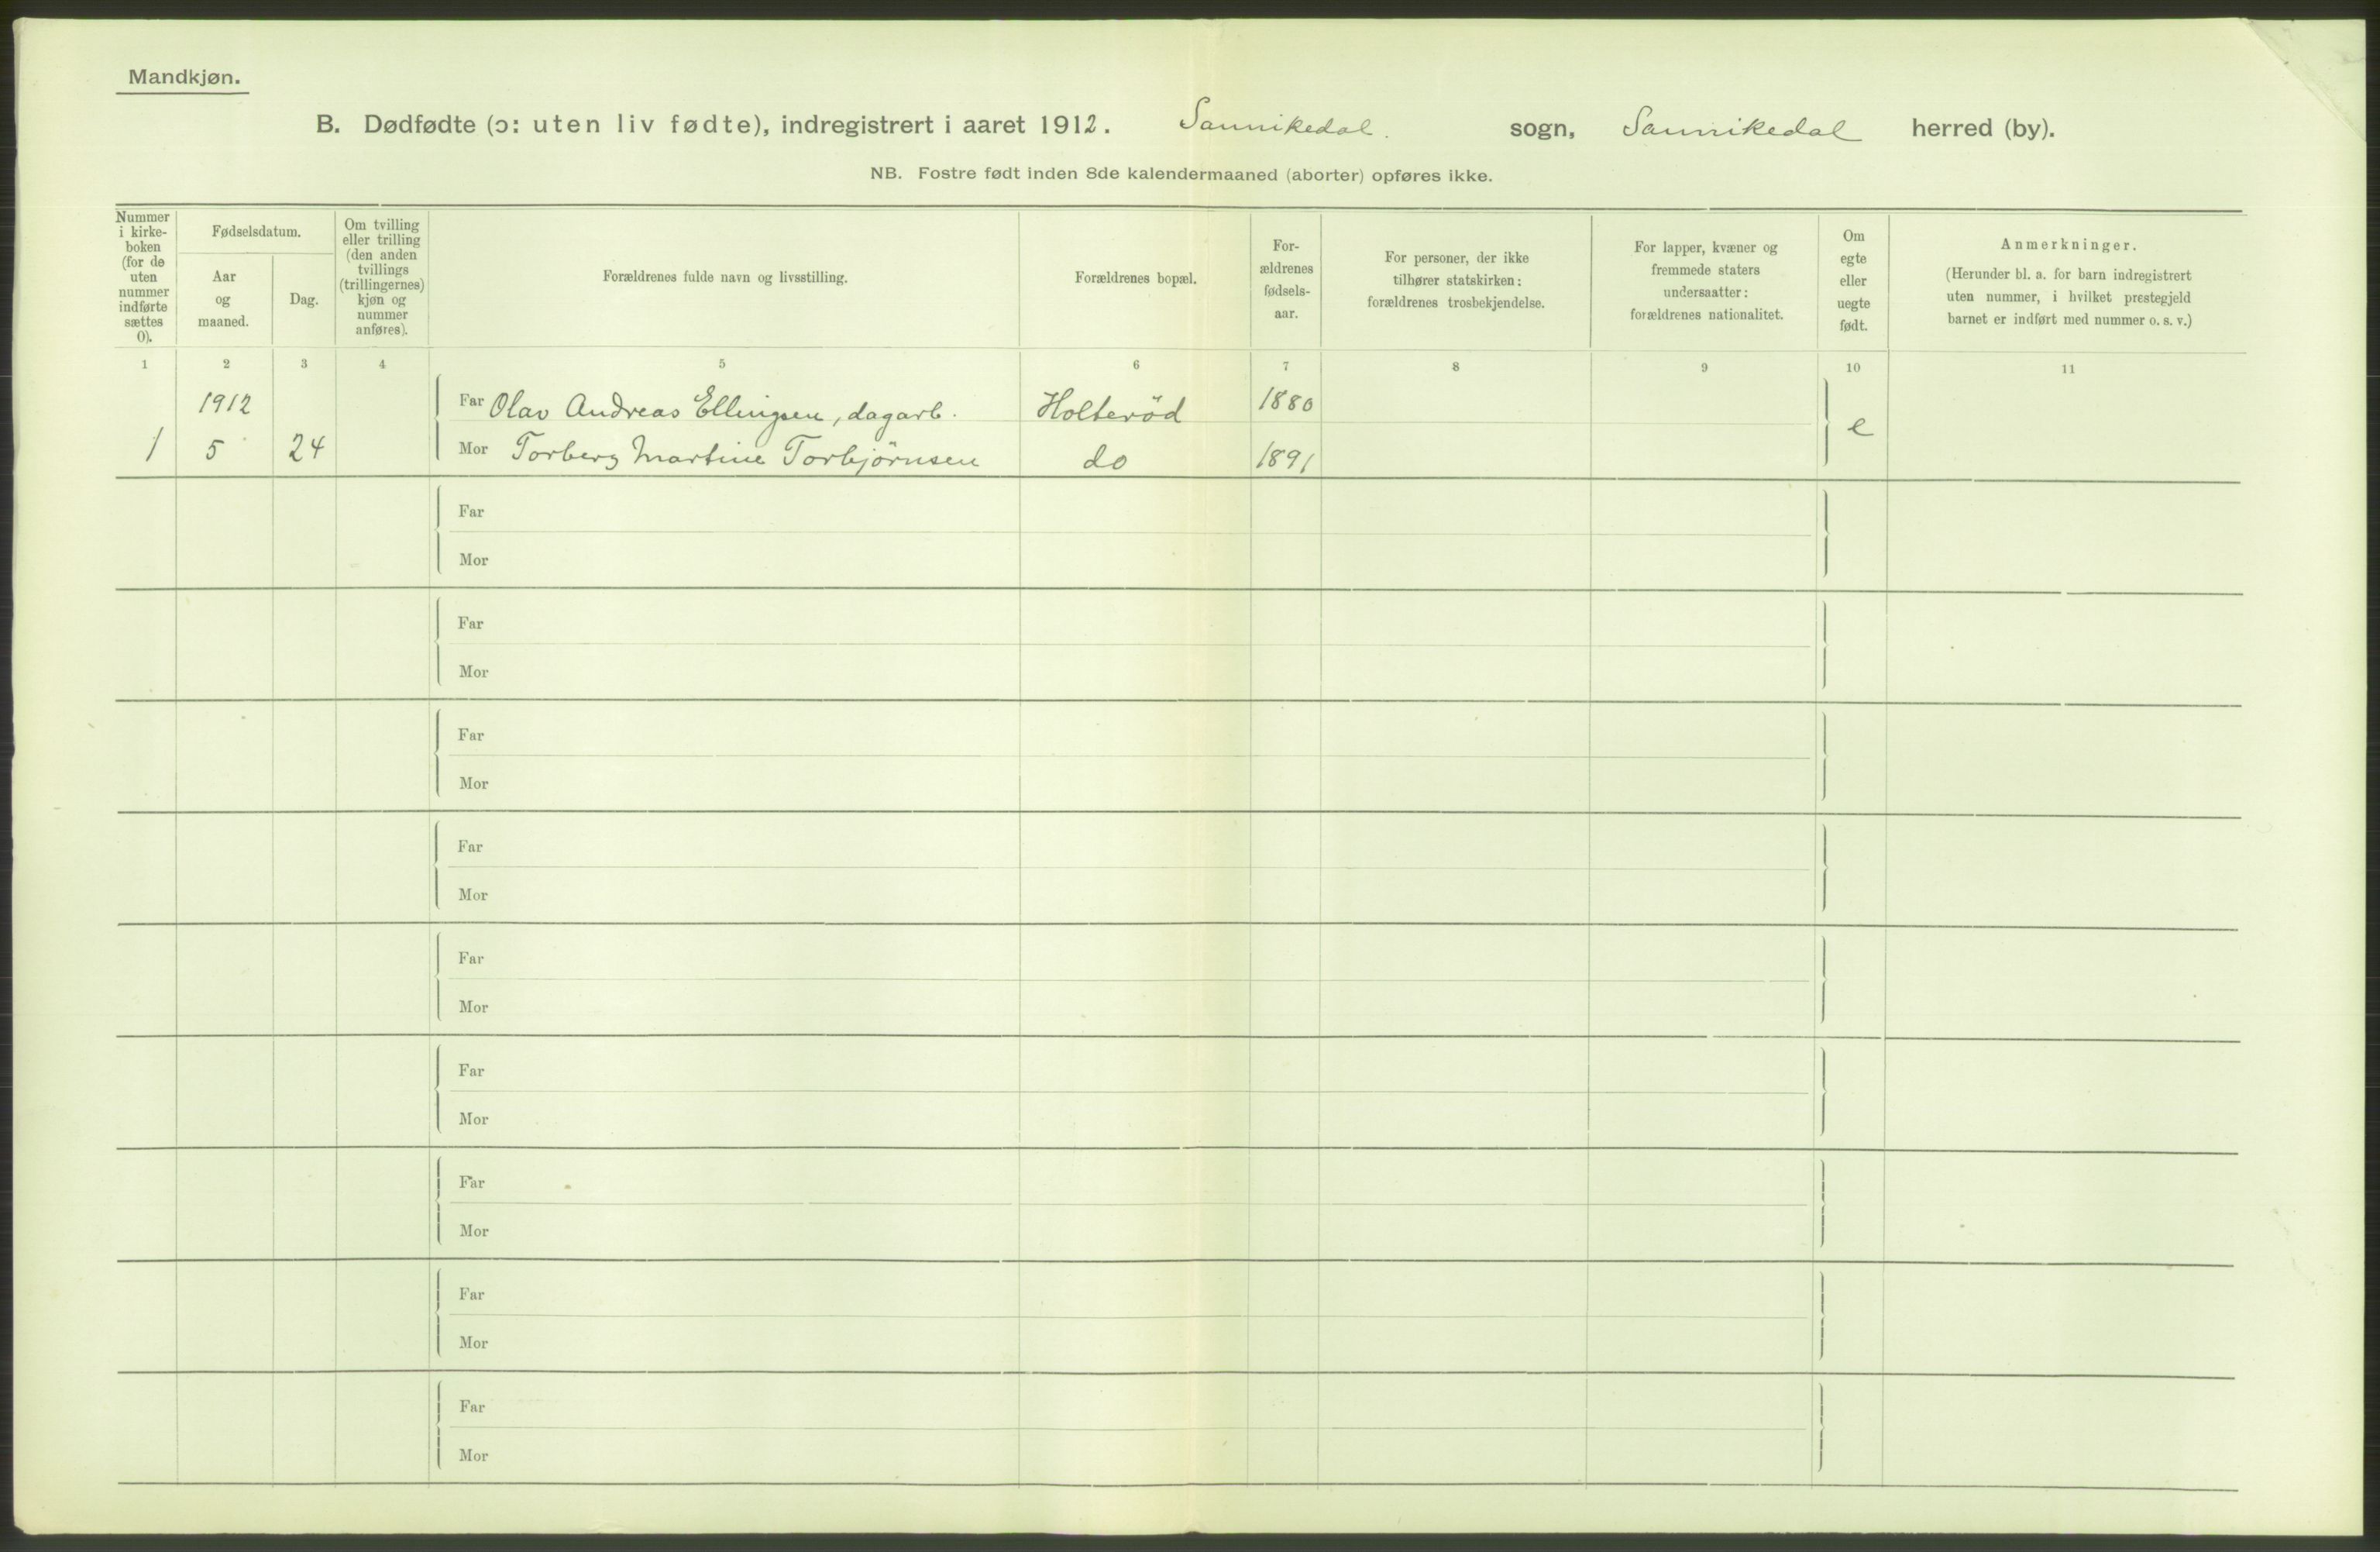 Mandkjøn.
B. Dødfødte (ɔ: uten liv fødte), indregistrert i aaret 1912. Sannikedal. sogn, Sannikedal herred (by).
NB. Fostre født inden 8de kalendermaaned (aborter) opføres ikke.
Nummer
i kirke-
boken
(for de
uten
nummer
indførte
sættes
0).
Fødselsdatum.
Aar
og
maaned.
Dag.
Om tvilling
eller trilling
(den anden
tvillings
(trillingernes)
kjøn og
nummer
anføres).
Forældrenes fulde navn og livsstilling.
Forældrenes bopæl.
For-
ældrenes
fødsels-
aar.
For personer, der ikke
tilhører statskirken:
forældrenes trosbekjendelse.
For lapper, kvæner og
fremmede staters
undersaatter:
forældrenes nationalitet.
Om
egte
eller
uegte
født.
Anmerkninger.
(Herunder bl. a. for barn indregistrert
uten nummer, i hvilket prestegjeld
barnet er indført med nummer o. s. v.)
1 2 3 4 5 6 7 8 9 10 11
1912 Far Olav Andreas Ellingsen, dagarb. Holterød 1880
e
1 5 24 Mor Torberg Martine Torbjørnsen do 1891
Far
Mor
Far
Mor
Far
Mor
Far
Mor
Far
Mor
Far
Mor
Far
Mor
Far
Mor
Far
Mor